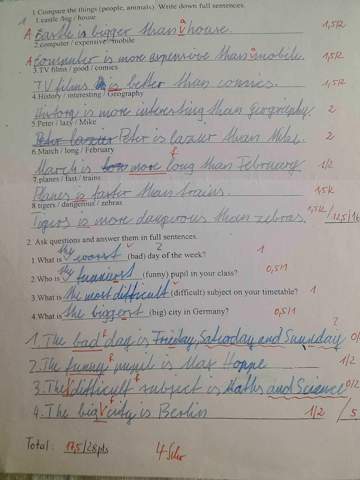 1. Compare the things (people, animals). Write down full sentences.
1.castle /big / house
A Castle is bigger than a house. 1,5R
2.computer / expensive / mobile
A Computer is more expensive than a mobile. 1,5R
3.TV films / good / comics
TV films is better than comics. 1,5R
4.History / interesting / Geography
History is more interesting than geography. 2
5.Peter / lazy / Mike
Peter is lazier than Mike. 2
6.March / long / February
March is more long than February. 1/2
7.planes / fast / trains
Planes is faster than trains. 1,5R
8.tigers / dangerous / zebras
Tigers is more dangerous than zebras. 12,5/16
2. Ask questions and answer them in full sentences.
1.What is the worst (bad) day of the week? 1
2.Who is the funniest (funny) pupil in your class? 0,5/1
3.What is the most difficult (difficult) subject on your timetable? 1
4.What is the biggest (big) city in Germany? 0,5/1
1. The bad day is Friday, Saturday and Sunnday
2. The funny pupil is Max Hoppe 1/2
3. The difficult subject is Maths and Science 0/2
4. The big city is Berlin 1/2
Total: 17,5/28pts